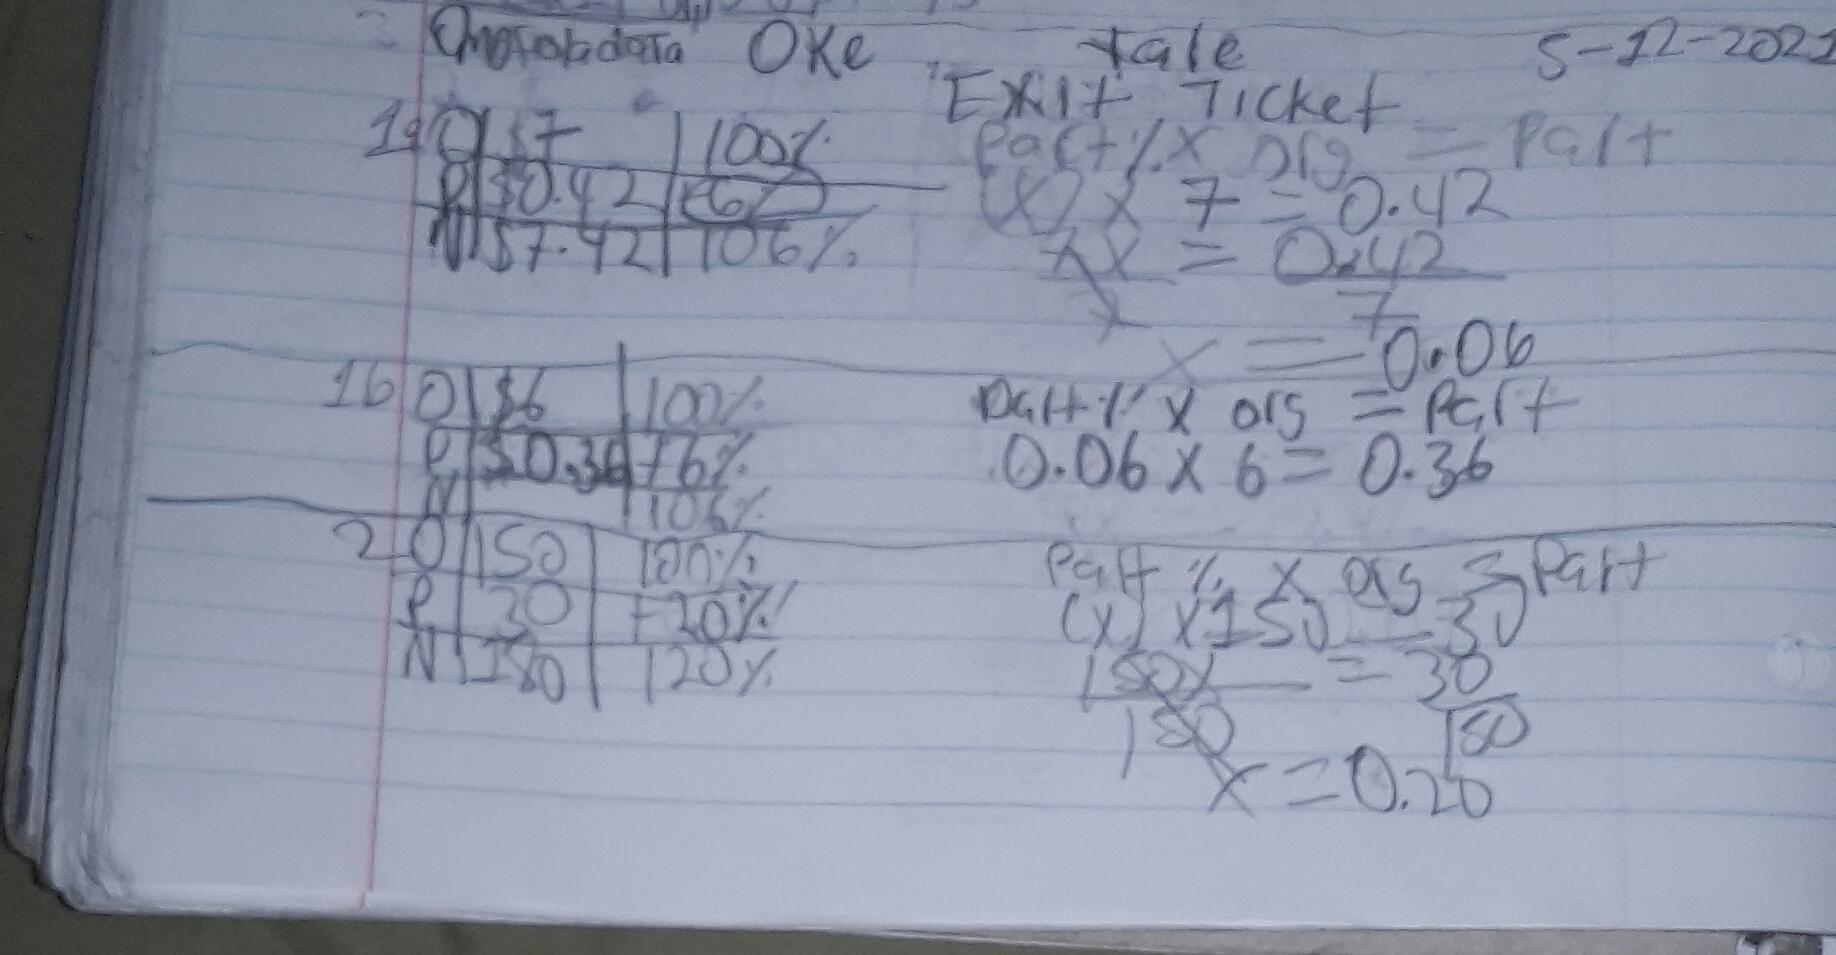 OKe tale 5-12-2021
Exit Ticket
1a O $7 100%
P $0.42 6%
N $7.42 106%
Part% x org = Part
(x) x 7 = 0.42
7x = 0.42
7 7
x = 0.06
1b O $6 100%
P $0.36 +6%
N 106%
Part% x org = Part
0.06 x 6 = 0.36
2 O 150 100%
P 30 +20%
N 180 120%
Part % x org = Part
(x) x 150 = 30
150x = 30
150 150
x = 0.20